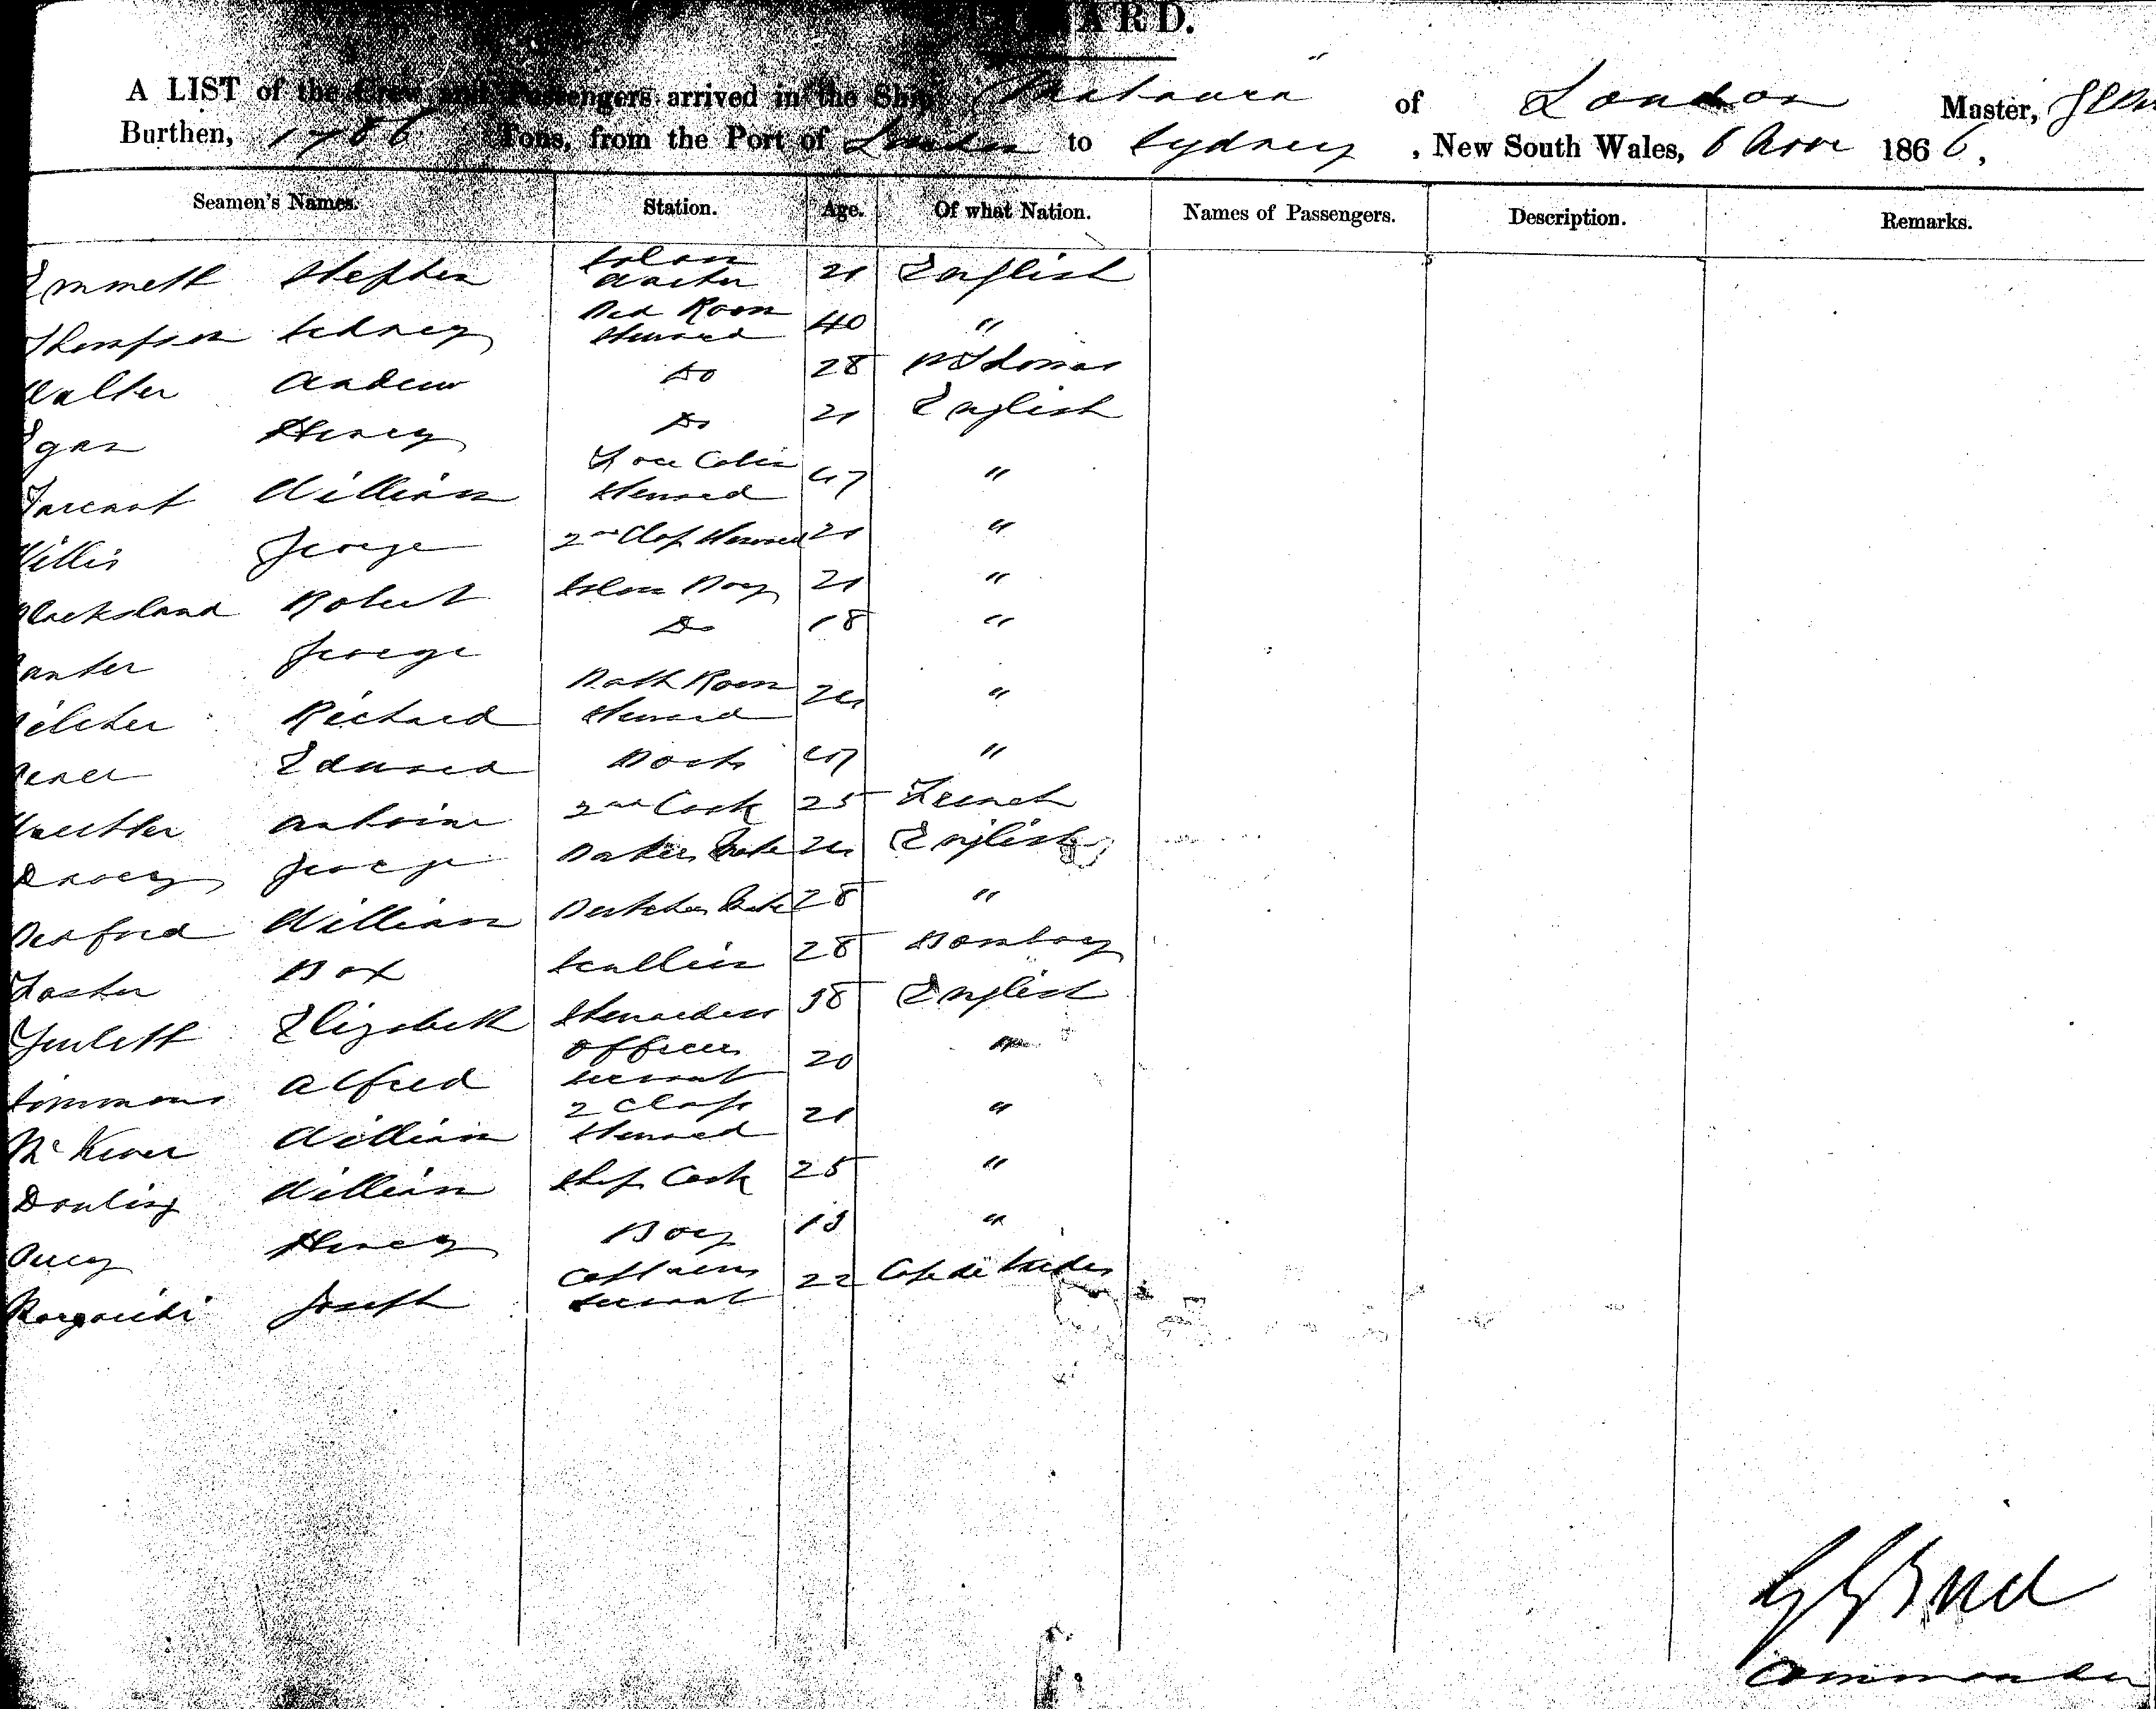 ARD.
A LIST of the Crew and Passengers arrived in the Ship Mataura of London Master,
Burthen, 1786 Tons, from the Port of London to Sydney, New South Wales, 6 Nov 1866,
Seamen's Names. Station. Age. Of what Nation. Names of Passengers. Description. Remarks.
Emmett Stephen Saloon Waiter 21 English
Thompson Sidney Bed Room Steward 40 "
Walter Andrew Do 28 St Thomas
Egan Henry Do 21 English
William Fore Cabin Steward 47 "
Willis George 2nd Class Steward 21 "
Blacksland Robert Saloon Boy 21 "
anter George Do 18 "
Pilcher Richard Bath Room Steward 24 "
Edward 47 "
Antoine 2nd Cook 25 French
Davey George Bakers Mate 24 English
Bedford William Butchers Mate 28 "
Foster Box Scullion 28 Bombay
Elizabeth Stewardess 38 English
Simmons Alfred Officers Servant 20 "
McKever William 2 Class Steward 21 "
Dowling William Ships Cook 25 "
Henry Boy 19 "
Joseph Captains Servant 22 Cape de Verdes
Commander